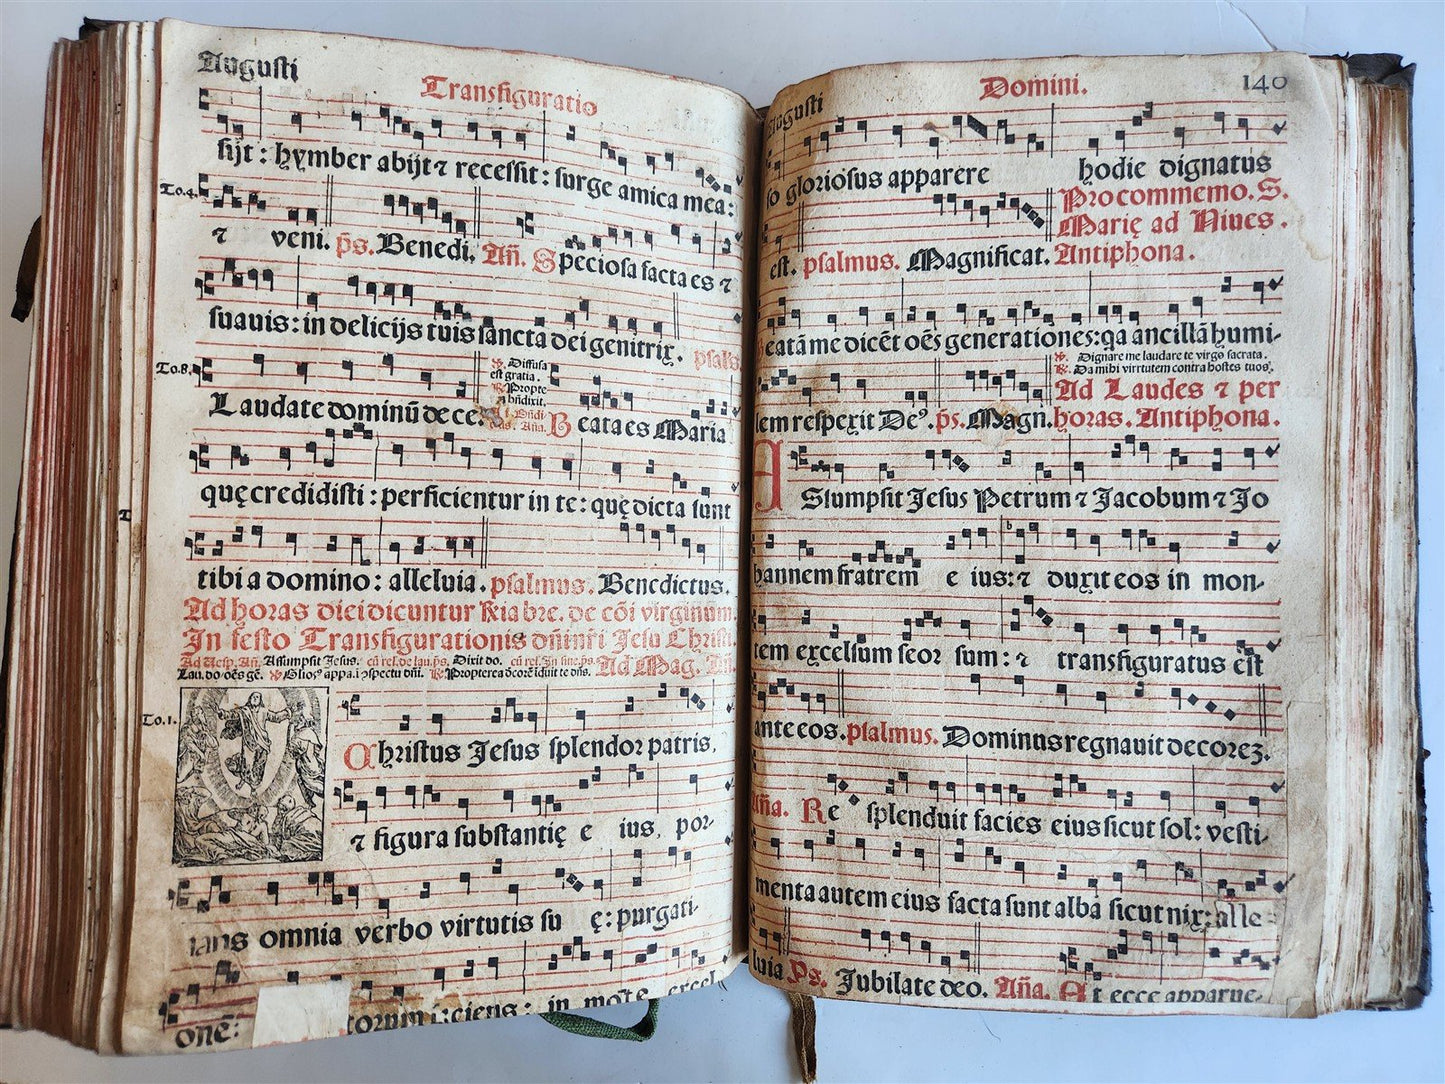 Augusti
Transfiguratio
sijt : hymber abijt ⁊ recessit : surge amica mea :
To.4.
⁊ veni. p̄s. Benedi. Añ. Speciosa facta es ⁊
suauis : in delicijs tuis sancta dei genitrix. psalm
To.8.
Laudate dominū de ce.
℣. Diffusa
est gratia.
℟. Propte-
a bñdixit.
Beata es Maria
quę credidisti : perficientur in te : quę dicta sunt
tibi a domino : alleluia. psalmus. Benedictus.
Ad horas diei dicuntur Ria bre. de cōi virginum.
In festo Transfigurationis dñi nr̄i Jesu Christi
Ad Vesp. Añ. Assumpsit Jesus. cū rel. de lau. p̄s. Dixit do. cū rel. In fine. p̄s. Ad Mag. An.
Lau. do oēs gē. ℣. Glios⁹ appa. i ɔspectu dñi. ℟. Propterea dcorē iduit te dñs.
To.1.
Christus Jesus splendor patris,
⁊ figura substantię e ius, por-
tans omnia verbo virtutis su ę : purgati-
onē : torum i:ciens : in mōte excel
Domini.
140
Augusti
so gloriosus apparere hodie dignatus
est. psalmus. Magnificat.
Pro commemo. S.
Marię ad Niues.
Antiphona.
Beatā me dicēt oēs generationes : qa ancillā humi-
lem respexit De⁹. p̄s. Magn.
℣. Dignare me laudare te virgo sacrata.
℟. Da mihi virrtutem contra hostes tuos.
Ad Laudes ⁊ per
horas. Antiphona.
ASsumpsit Jesus Petrum ⁊ Jacobum ⁊ Jo
hannem fratrem e ius : ⁊ duxit eos in mon-
tem excelsum seor sum : ⁊ transfiguratus est
ante eos. psalmus. Dominus regnauit decorez.
Aña. Re splenduit facies eius sicut sol : vesti-
menta autem eius facta sunt alba sicut nix : alle-
luia Ps. Jubilate deo. Aña. Et ecce apparue-